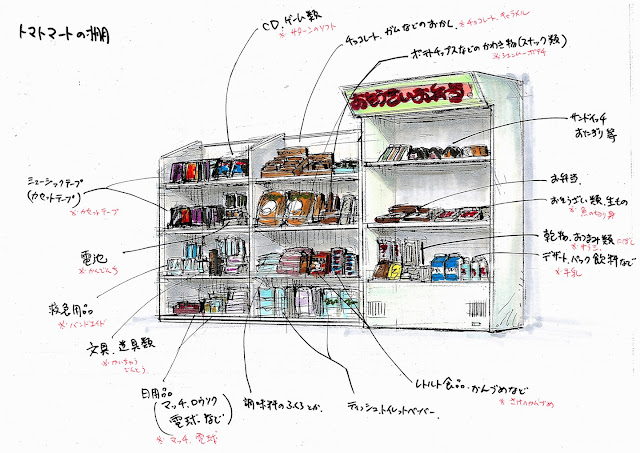 トマトマートの棚
CD、ゲーム類
※サターンのソフト
チョコレート、ガムなどのおかし
※チョコレート、キャラメル
ポテトチップスなどのかわき物(スナック類)
※シェンムーポテチ
おそうざいお弁当
サンドイッチ
おにぎり等
ミュージックテープ
(カセットテープ)
※カセットテープ
お弁当
おそうざい類、生もの
※魚の切り身
電池
※かんでんち
乾物、おつまみ類
デザート、パック飲料など
※牛乳
救急用品
※バンドエイド
文具、道具類
※かいちゅうでんとう
日用品
(マッチ、ロウソク
電球など)
※マッチ、電球
調味料のふくろとか
ティッシュ、トイレットペーパー
レトルト食品、かんづめなど
※さけのかんづめ